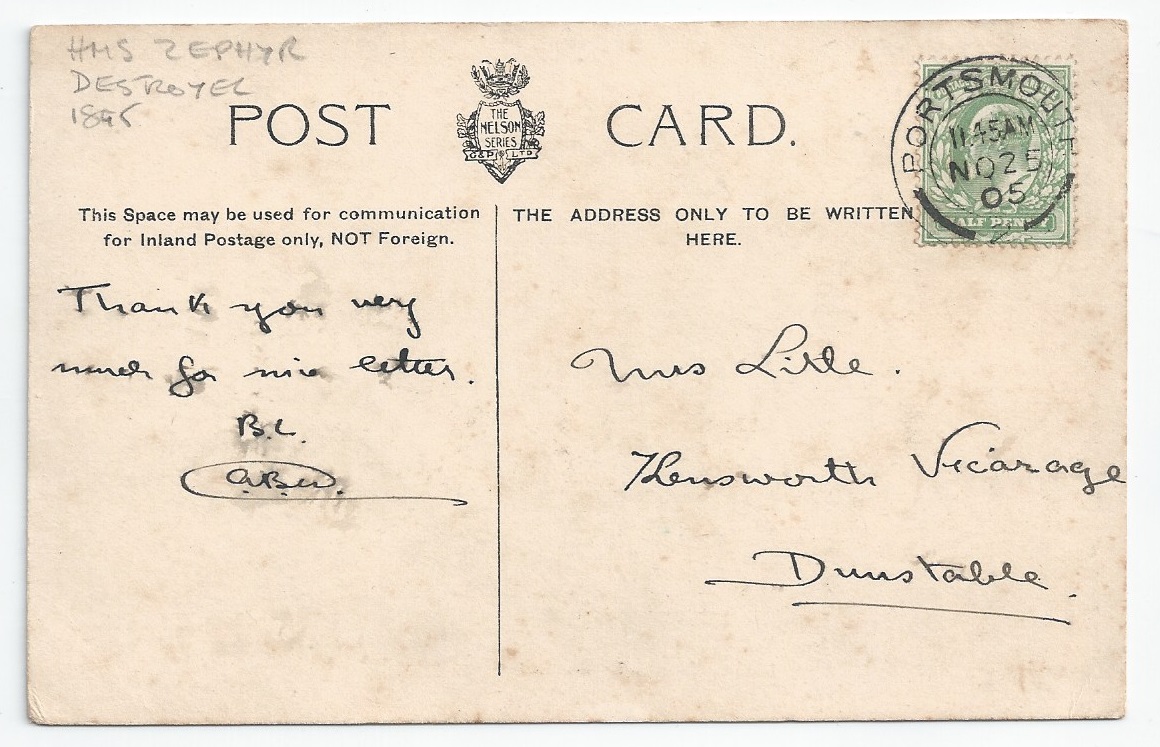 HMS ZEPHYR
DESTROYER
1895
POST CARD.
THE
NELSON
SERIES
G&P LTD
PORTSMOUTH
11.45AM
NO 25
05
2
HALF PENNY
This Space may be used for communication
for Inland Postage only, NOT Foreign.
THE ADDRESS ONLY TO BE WRITTEN
HERE.
Thank you very
much for nice letter.
B.L.
Mrs Little.
Kensworth Vicarage
Dunstable.